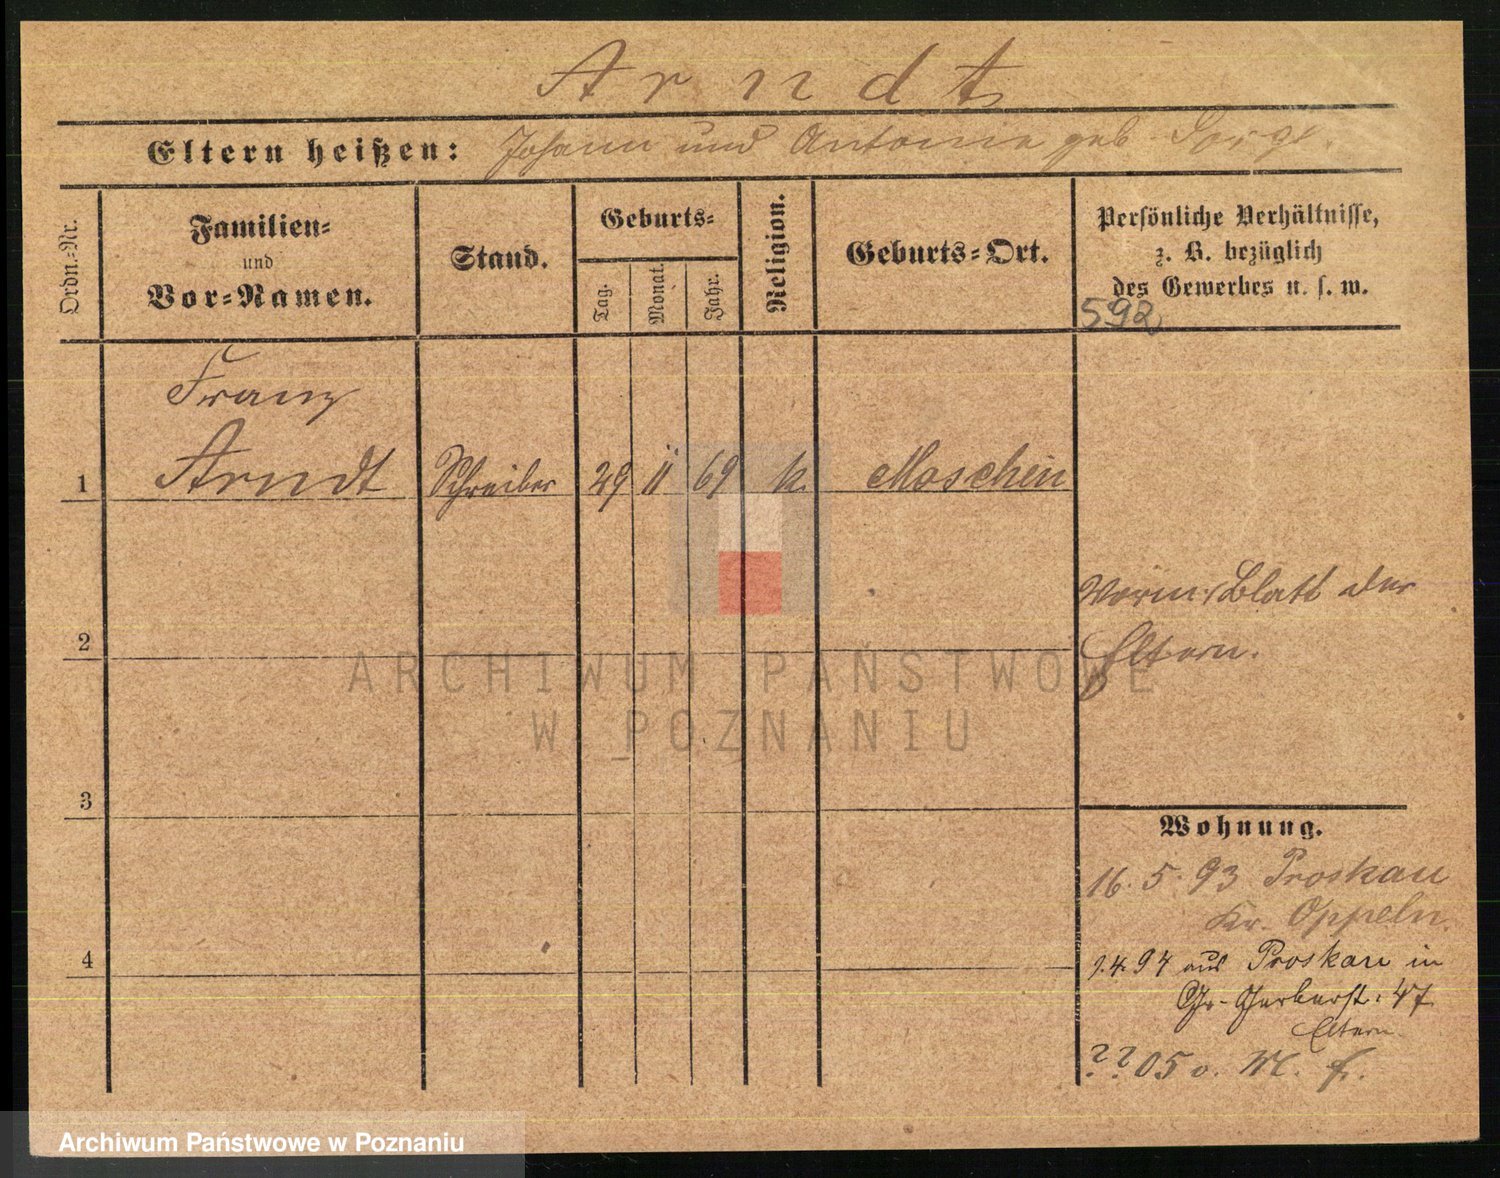 Arndt
Eltern heißen: Johann und Antonie geb.
Ordn.-Nr.
Familien-
und
Vor-Namen.
Stand.
Geburts-
Tag.
Monat.
Jahr.
Religion.
Geburts-Ort.
Persönliche Verhältnisse,
z. B. bezüglich
des Gewerbes u. s. w.
592
Franz
1 Arndt Schreiber 29 11 69 k. Moschin
2
3
4
Blatt der
Eltern.
Wohnung.
16. 5. 93 Proskau
Kr. Oppeln.
1.4.94 aus Proskau in
Gr-Gerberst. 47
Eltern.
? ? 05 v. M. f.
ARCHIWUM PAŃSTWOWE
W POZNANIU
Archiwum Państwowe w Poznaniu